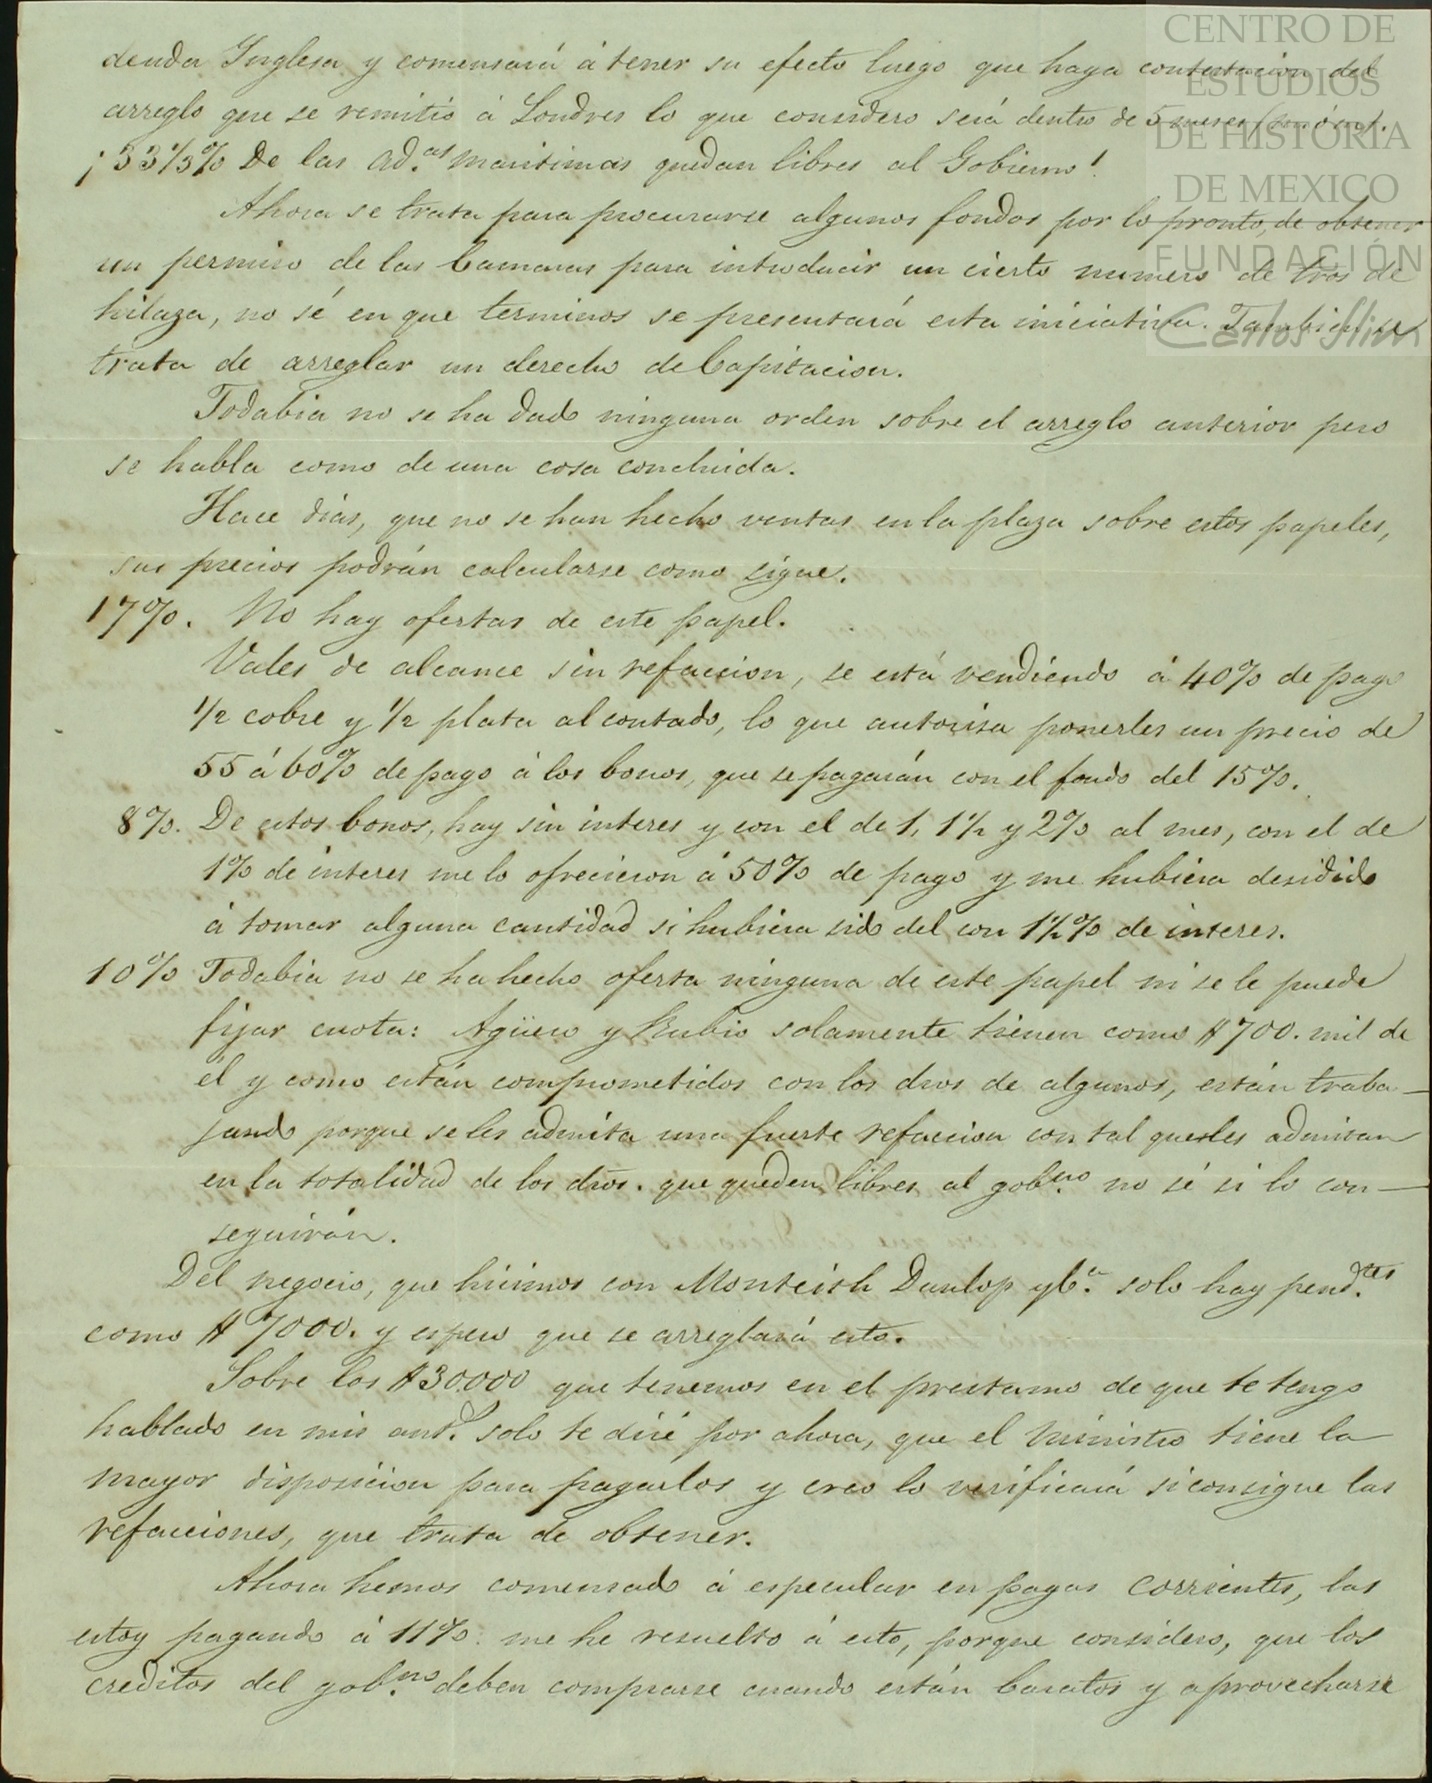 deuda Ynglesa y comensará á tener su efecto luego que haya contestacion del
arreglo que se remitió á Londres lo que considero será dentro de 5 meses
¡ 53⅓% De las ad.as maritimas quedan libres al Gobierno!
Ahora se trata para procurarse algunos fondos por lo pronto, de obtener
un permiso de las Camaras para introducir un cierto numero de tros de
hilaza, no sé en que terminos se presentará esta iniciativa. Tambien se
trata de arreglar un derecho de Capitacion.
Todabia no se ha dado ninguna orden sobre el arreglo anterior pero
se habla como de una cosa concluida.
Hace dias, que no se han hecho ventas en la plaza sobre estos papeles,
sus precios podrán calcularse como sigue.
17%. No hay ofertas de este papel.
Vales de alcance sin refaccion, se está vendiendo á 40% de pago
½ cobre y ½ plata al contado, lo que autorisa ponerles un precio de
55 á 60% de pago á los bonos, que se pagarán con el fondo del 15%.
8%. De estos bonos, hay sin interes y con el de 1, 1½ y 2% al mes, con el de
1% de interes me lo ofrecieron á 50% de pago y me hubiera desidido
á tomar alguna cantidad si hubiera sido del con 1½% de interes.
10% Todabia no se ha hecho oferta ninguna de este papel ni se le puede
fijar cuota: Agüero y Rubio solamente tienen como $700. mil de
él y como están comprometidos con los dros de algunos, están traba-
jando porque se les admita una fuerte refaccion con tal que les admitan
en la totalidad de los dros. que queden libres al gob.no no sé si lo con-
seguirán.
Del negocio, que hicimos con Monteith Dunlop y C.a solo hay pend.tes
como $ 7000. y espero que se arreglará esto.
Sobre los $30.000 que tenemos en el prestamo de que te tengo
hablado en mis ant.s solo te diré por ahora, que el Ministro tiene la
mayor disposicion para pagarlos y creo lo verificará si consigue las
refacciones, que trata de obtener.
Ahora hemos comensado á especular en pagas corrientes, las
estoy pagando á 11%. me he resuelto á esto, porque considero, que los
creditos del gob.no deben comprarse cuando están baratos y aprovecharse
CENTRO DE
ESTUDIOS
DE HISTORIA
DE MEXICO
FUNDACIÓN
Carlos Slim